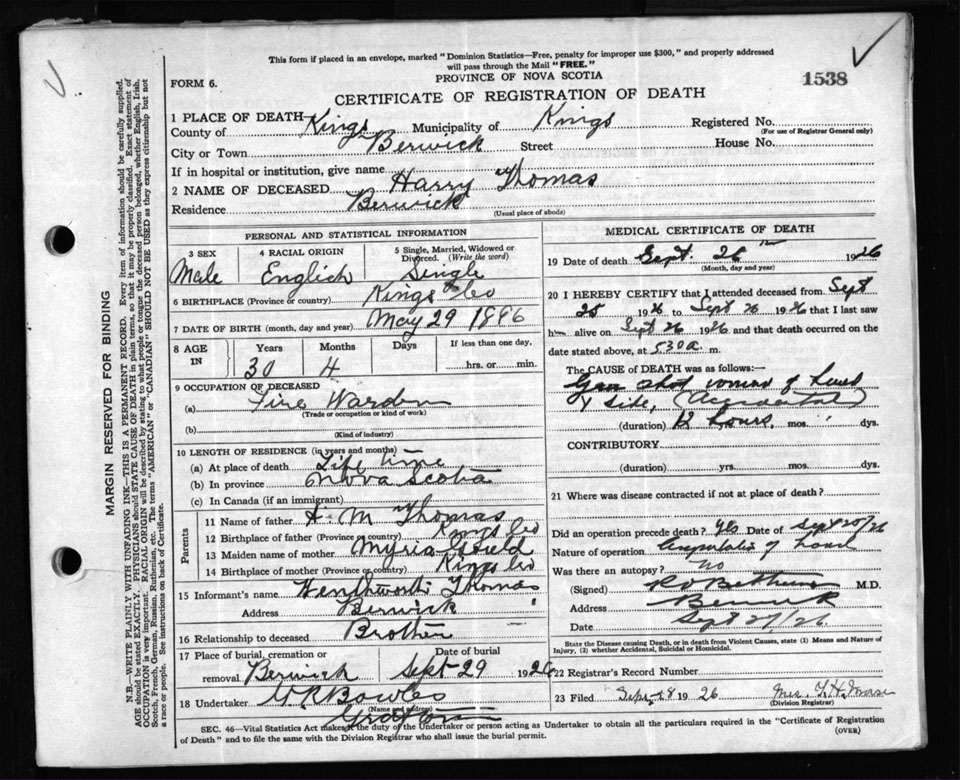 This form if placed in an envelope, marked "Dominion Statistics—Free, penalty for improper use $300," and properly addressed
will pass through the Mail "FREE."
FORM 6.
PROVINCE OF NOVA SCOTIA
1538
CERTIFICATE OF REGISTRATION OF DEATH
1 PLACE OF DEATH—
County of Kings Municipality of Kings Registered No.
(For use of Registrar General only)
City or Town Berwick Street House No.
If in hospital or institution, give name
2 NAME OF DECEASED Harry Thomas
Residence Berwick
(Usual place of abode)
PERSONAL AND STATISTICAL INFORMATION
3 SEX 4 RACIAL ORIGIN 5 Single, Married, Widowed or Divorced. (Write the word)
Male English Single
6 BIRTHPLACE (Province or country) Kings Co
7 DATE OF BIRTH (month, day and year) May 29 1896
8 AGE IN Years Months Days If less than one day,
30 4 hrs. or min.
9 OCCUPATION OF DECEASED
(a) Fire Warden
(Trade or occupation or kind of work)
(b)
(Kind of industry)
10 LENGTH OF RESIDENCE (in years and months)
(a) At place of death Life time
(b) In province Nova Scotia
(c) In Canada (if an immigrant)
Parents
11 Name of father A. M Thomas
12 Birthplace of father (Province or country) Kings Co
13 Maiden name of mother Myria Gould
14 Birthplace of mother (Province or country) Kings Co
15 Informant's name Wenthworth Thomas
Address Berwick
16 Relationship to deceased Brother
17 Place of burial, cremation or removal Date of burial
Berwick Sept 29 1926
18 Undertaker W R Bowles
(Name and address)
Grafton
MEDICAL CERTIFICATE OF DEATH
19 Date of death Sept. 26th 1926
(Month, day and year)
20 I HEREBY CERTIFY that I attended deceased from Sept
25 1926 to Sept 26 1926 that I last saw
him alive on Sept 26 1926 and that death occurred on
date stated above, at 530 a. m.
The CAUSE of DEATH was as follows:—
Gun shot wound of hand
& side, (Accidental)
(duration) 12 hours. mos. dys.
CONTRIBUTORY
(duration) yrs. mos. dys.
21 Where was disease contracted if not at place of death?
Did an operation precede death? Yes Date of Sept 25/26
Nature of operation Amputation of hand
Was there an autopsy? No
(Signed) M.D.
Address Berwick
Date Sept 27/26
State the Disease causing Death, or in death from Violent Causes, state (1) Means and Nature of
Injury, (2) whether Accidental, Suicidal or Homicidal.
22 Registrar's Record Number
23 Filed Sept 28 1926 Mrs.
(Division Registrar)
SEC. 46—Vital Statistics Act makes the duty of the Undertaker or person acting as Undertaker to obtain all the particulars required in the "Certificate of Registration
of Death" and to file the same with the Division Registrar who shall issue the burial permit.
(OVER)
MARGIN RESERVED FOR BINDING
N.B.—WRITE PLAINLY WITH UNFADING INK—THIS IS A PERMANENT RECORD. Every item of information should be carefully supplied.
AGE should be stated EXACTLY. PHYSICIANS should STATE CAUSE OF DEATH in plain terms, so that it may be properly classified. Exact statement of
OCCUPATION is very important. RACIAL ORIGIN will be described by stating to what people or tongue the deceased person belonged, whether English, Irish,
Scotch, French, German, Russian, Ruthenian, etc. The terms "AMERICAN" or "CANADIAN" SHOULD NOT BE USED as they express citizenship but not
a race or people. See instructions on back of Certificate.